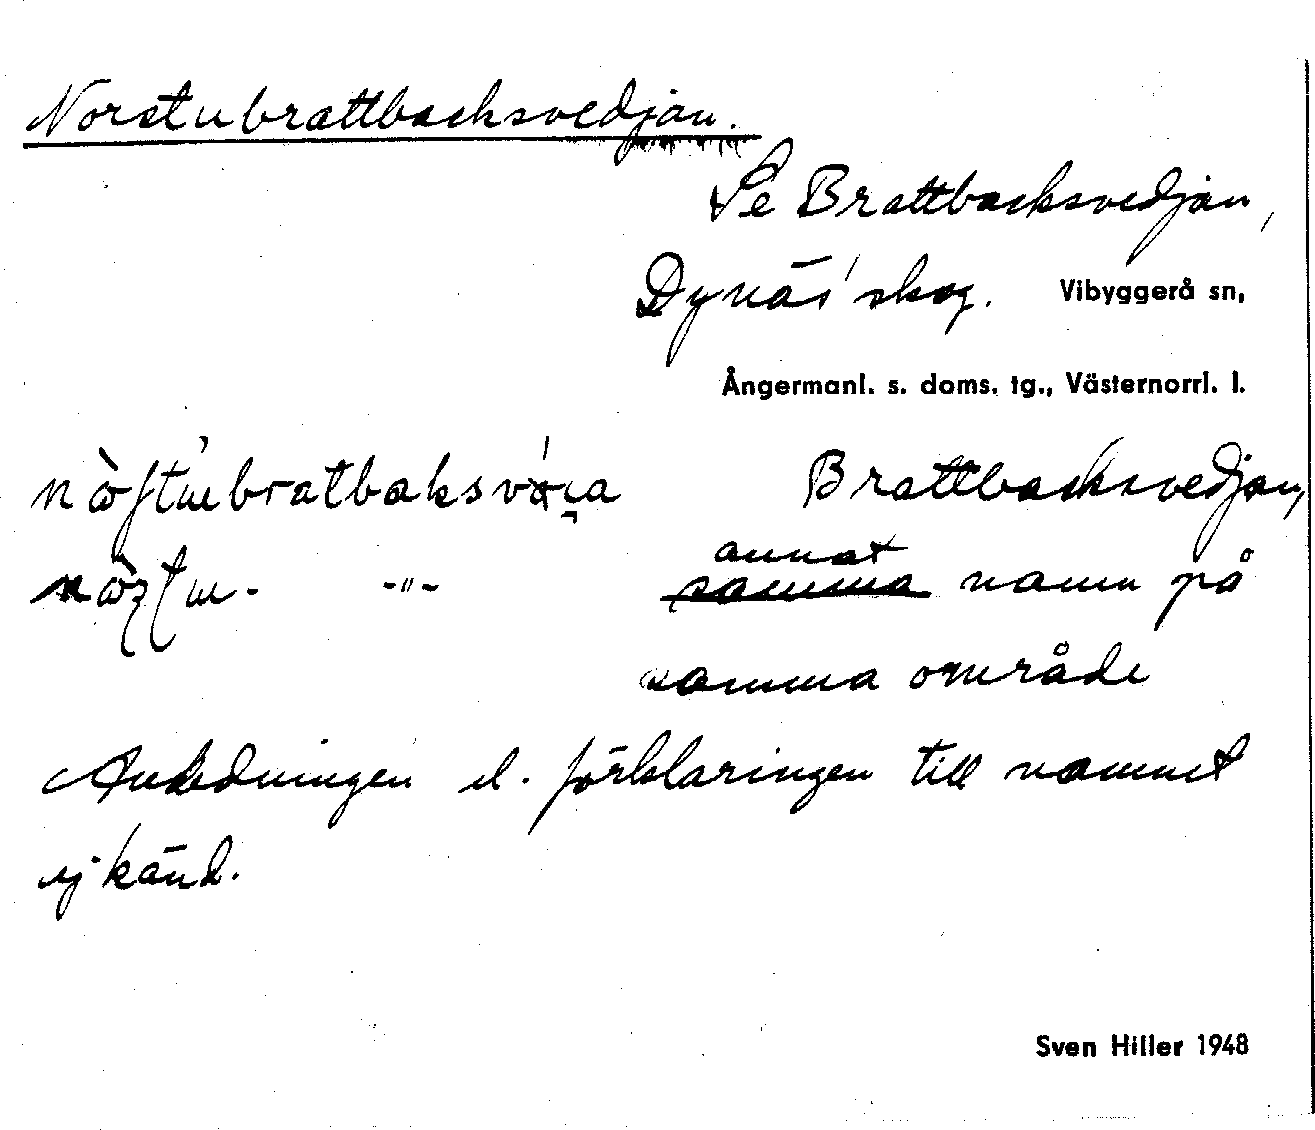 Norstubrattbacksvedjan.
Se Brattbacksvedjan,
Dynäs' skog. Vibyggerå sn,
Ångermanl. s. doms. tg., Västernorrl. l.
Brattbacksvedjan,
annat
samma namn på
samma område
Anledningen el. förklaringen till namnet
ej känd.
Sven Hiller 1948